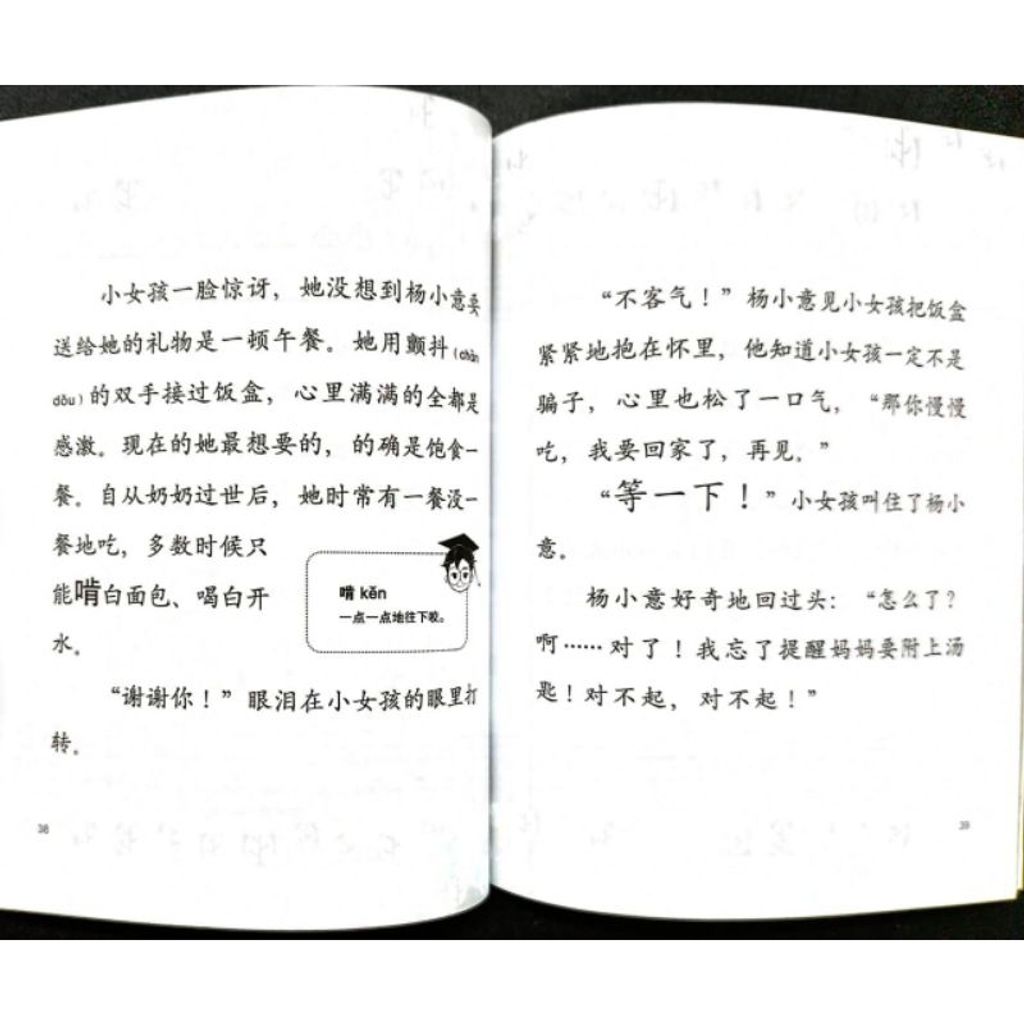 小女孩一脸惊讶，她没想到杨小意要
送给她的礼物是一顿午餐。她用颤抖（chàn
dǒu）的双手接过饭盒，心里满满的全都是
感激。现在的她最想要的，的确是饱食一
餐。自从奶奶过世后，她时常有一餐没一
餐地吃，多数时候只
能啃白面包、喝白开
水。
啃 kěn
一点一点地往下咬。
“谢谢你！”眼泪在小女孩的眼里打
转。
38
“不客气！”杨小意见小女孩把饭盒
紧紧地抱在怀里，他知道小女孩一定不是
骗子，心里也松了一口气，“那你慢慢
吃，我要回家了，再见。”
“等一下！”小女孩叫住了杨小
意。
杨小意好奇地回过头：“怎么了？
啊……对了！我忘了提醒妈妈要附上汤
匙！对不起，对不起！”
39